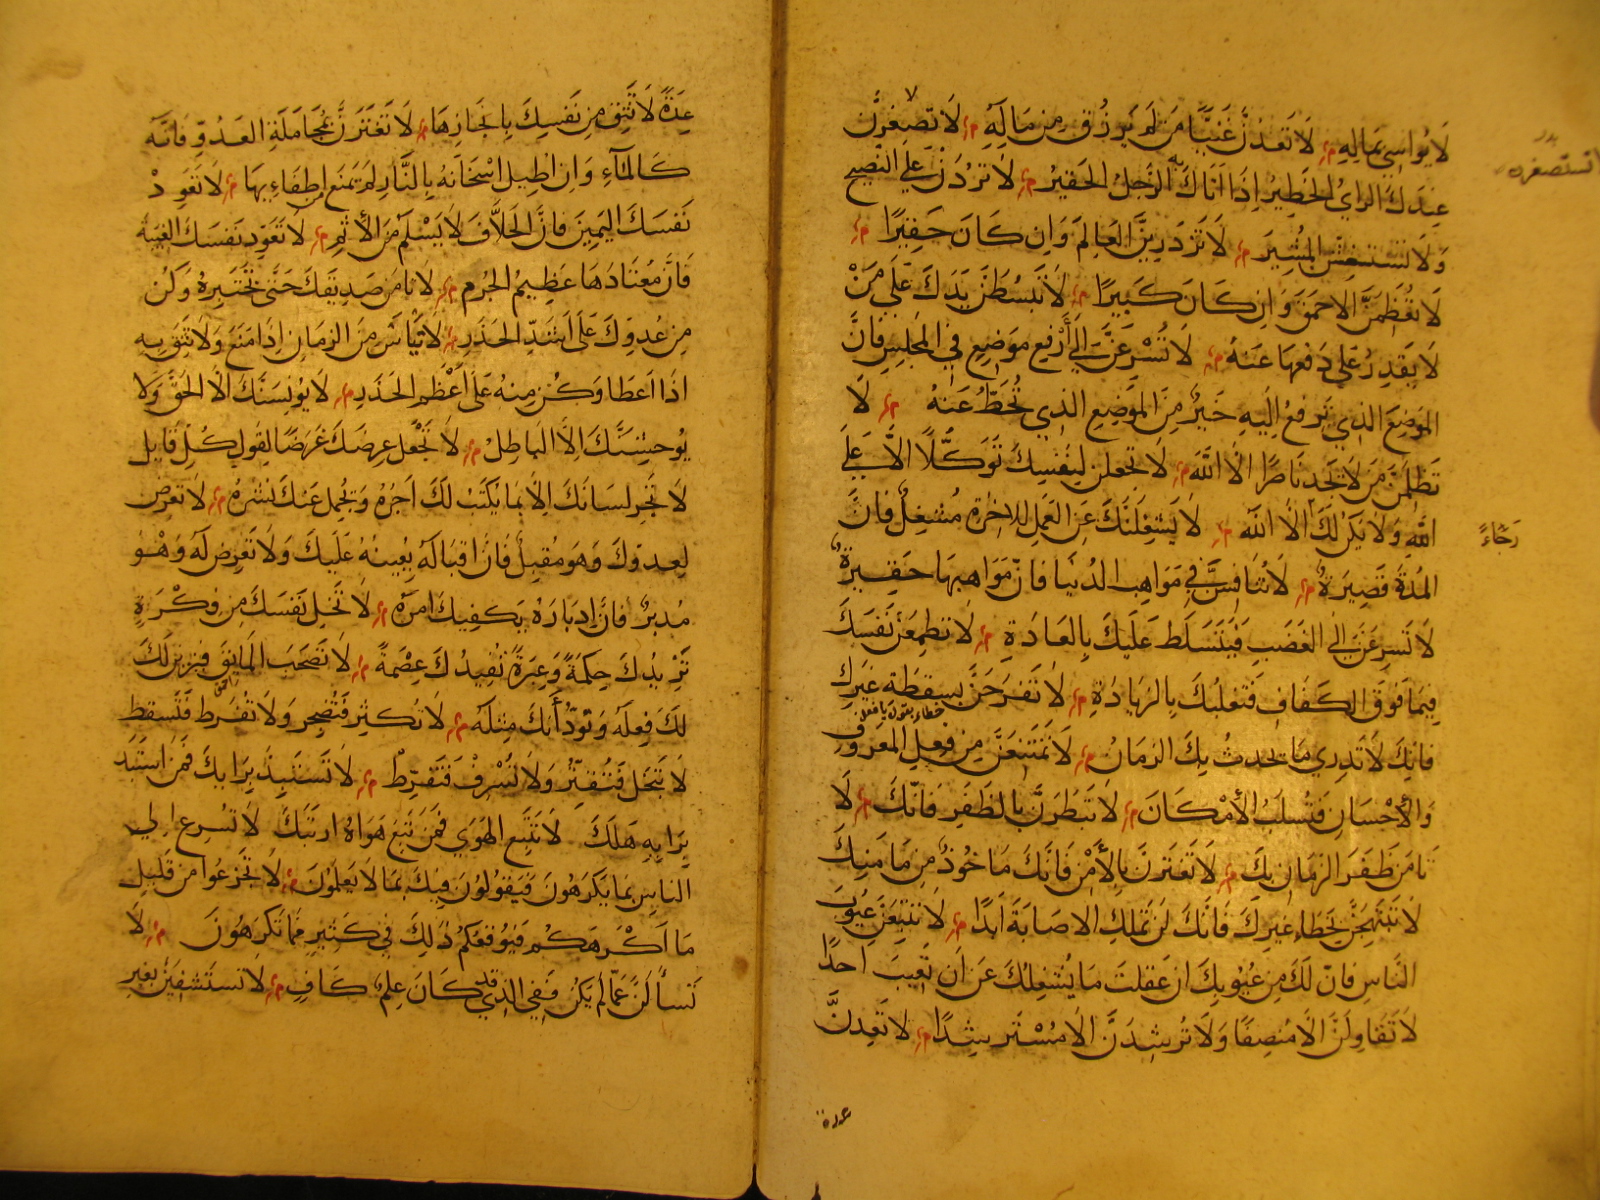 لَا يُوَاسِي بِمَالِهِ لَا تَعُدَّنَّ غَنِيًّا مَن لَم يَرزُق مِن مَالِهِ لَا تصغرنَّ
عِندَكَ الرَايُ الخَطِيرُ اِذَا اَتَاكَ بِهِ الرَّجُلُ الحَقِيرُ لَا تَرُدَّنَّ عَلَى النَّصِيحِ
وَلَا تَستَغِشَّنَّ المُشِيرَ لَا تَزدَرِيَنَّ العَالِمَ وَاِن كَانَ حَقِيرًا
لَا تُعَظِّمَنَّ الاَحمَقَ وَاِن كَانَ كَبِيرًا لَا تَبسُطَنَّ يَدَكَ عَلَى مَنْ
لَا يَقدِرُ عَلَى دَفعِهَا عَنهُ لَا تُسْرِعَنَّ اِلَى أَرْفَعِ مَوضِعٍ فِي المَجلِسِ فَاِنَّ
المَوضِعَ الَذِي تُرفَعُ اِلَيهِ خَيرٌ مِنَ المَوضِعِ الذِي تُحَطُّ عَنهُ لَا
تَظلِمَنَّ مَن لَا يَجِدُ نَاصِرًا اِلَّا اللّٰهَ لَا تَجعَلَن لِنَفسِكَ تَوَكُّلًا اِلَّا عَلَى
اللّٰهِ وَلَا يَكُن لَكَ اِلَّا اللّٰه لَا يَشغَلَنَّكَ عَنِ العَمَلِ لِلاٰخِرَةِ مُشغِلٌ فَاِنَّ
المُدَةَ قَصِيرَةٌ لَا تُنَافِسَنَّ فِي مَوَاهِبِ الدُنيَا فَاِنَّ مَوَاهِبَهَا حَقِيرَةٌ
لَا تَسرِعَنَّ اِلَى الغَضَبِ فَيَتَسَلَطَ عَلَيكَ بِالعَادَةِ لَا تطمِعَنَّ نَفسَكَ
فِيمَا فَوقَ الكَفَافِ فَتَغلِبُكَ بِالزِيَادَةِ لَا تَفرَحَنَّ بِسقطَةِ غَيرِكَ
فَاِنَكَ لَا تَدرِي مَا يُحدِثُ بِكَ الزَمَانُ لَا تَمتَنِعَنَّ مِن فِعلِ المَعرُوفِ
وَالأِحسَانِ فَتُسلَبُ الأمكَانَ لَا تَبطَرَنَّ بِالظَفَرِ فَاِنَّكَ لَا
تَامَن ظَفَرَ الزمَانِ بِكَ لَا تَغتَرنَّ بِالأَمْنِ فَاِنَّكَ مَاخُوذٌ مِن مَامَنِكَ
لَا تَبتَهِجَنَّ بِخَطَاءِ غَيرِكَ فَاِنَّكَ لَن تَملِكَ الاِصَابَةَ اَبَدًا لَا تَتَبِعَنَّ عُيُوبَ
النَاسِ فَاِنَّ لَكَ مِن عُيُوبِكَ اِن عَقَلتَ مَا يُشغِلُكَ عَن اَن تَعِيبَ اَحدًا
لَا تُقَاوِلَنَّ اِلَّا مُنصِفًا وَلَا تُرشِدَنَّ اِلَّا مُسْتَرشِدًا لَا تَعِدَنَّ
عدة
رَجَاءً
عِدَةً لَا تَثِق مِن نَفسِكَ بِاِنجَازِهَا لَا تَغتَرَنَّ بِمُجَامَلَةِ العَدُوِّ فَاِنَّه
كَالمَاءِ وَاِن اُطِيلَ اسْخَانُهُ بِالنَّارِ لَم يَمنَع مِن اِطفَاءِهَا لَا تَعَوِدْ
نَفسَكَ اليَمِينَ فَاِنَّ الحَلَّافَ لَا يَسْلَمُ مِنَ الأِثمِ لَا تَعَوِّد نَفسَكَ الغِيبَةَ
فَاِنَّ مُعتَادَهَا عَظِيمُ الجُرمِ لَا تَامَن صَدِيقَكَ حَتَّى تَختَبِرَهُ وَكُن
مِن عَدُوِّكَ عَلَى اَشَدِّ الحَذَرِ لَا تَيأَس مِنَ الزمَانِ اِذَا مَنَعَ وَلَا تَثِق بِهِ
اِذَا اَعطَا وَكُن مِنهُ عَلَى اَعْظَمِ الحَذَرِ لَا يُونِسَنَّكَ اِلَّا الحَقُّ وَلَا
يُوحِشَنَّكَ اِلَّا البَاطِلُ لَا تَجْعَل عِرضَكَ غَرَضًا لِقَولِ كُلِّ قَايِل
لَا تُجرِ لِسَانَكَ اِلَّا بِمَا يُكتَبُ لَكَ اَجرُهُ وَيَجمُلُ عَنكَ نَشرُهُ لَا تَعرِض
لِعَدوِّكَ وَهوَ مُقبِلٌ فَاِنَّ اِقبَالَهُ يُعِينُهُ عَلَيكَ وَلَا تَعرِض لَهُ وَهُوَ
مُدبِرٌ فَاِنَّ اِدبَارَهُ يَكفِيكَ امرَهُ لَا تُخلِ نَفسَكَ مِن فِكْرَةٍ
تَزِيدُكَ حِكمَةً وَعِبرَةً تُفِيدُكَ عِصْمَةً لَا تَصحَبِ المَايِقَ فيزيِّن لَكَ
لَكَ فِعلَهُ وَيَوَدُّ أَنَّكَ مِثلَهُ لَا تُكثِر فَتُضجِر وَلَا تُفرِط فَتَسقط
لَا تَبخَل فَتُقتِّر وَلَا تُسرِفْ فَتُفرِطْ لَا تَستَبِدَّ بِرَايِكَ فَمَنِ استَبَد
بِرَايِهِ هَلَكَ لَا تَتَّبِعِ الهَوَى فَمَن تَبِعَ هَوَاهُ ارتَبَكَ لَا تُسرِع اِلَى
النَاسِ بِمَا يَكرَهُونَ فَيَقُولُونَ فِيكَ بِمَا لَا يَعلَمُونَ لَا تَجزَعُوا مِن قَلِيلِ
مَا اَكرَهَكُم فَيُوقِعَكُم ذٰلِكَ فِي كَثِيرٍ مِّمَا تَكرَهُونَ لَا
تَسأَلَنَّ عَمَّا لَم يَكُن فَفِي الذِي قَد كَانَ عِلمٌ كَافٍ لَا تَستَشفِيَنَّ بِغَيرِ